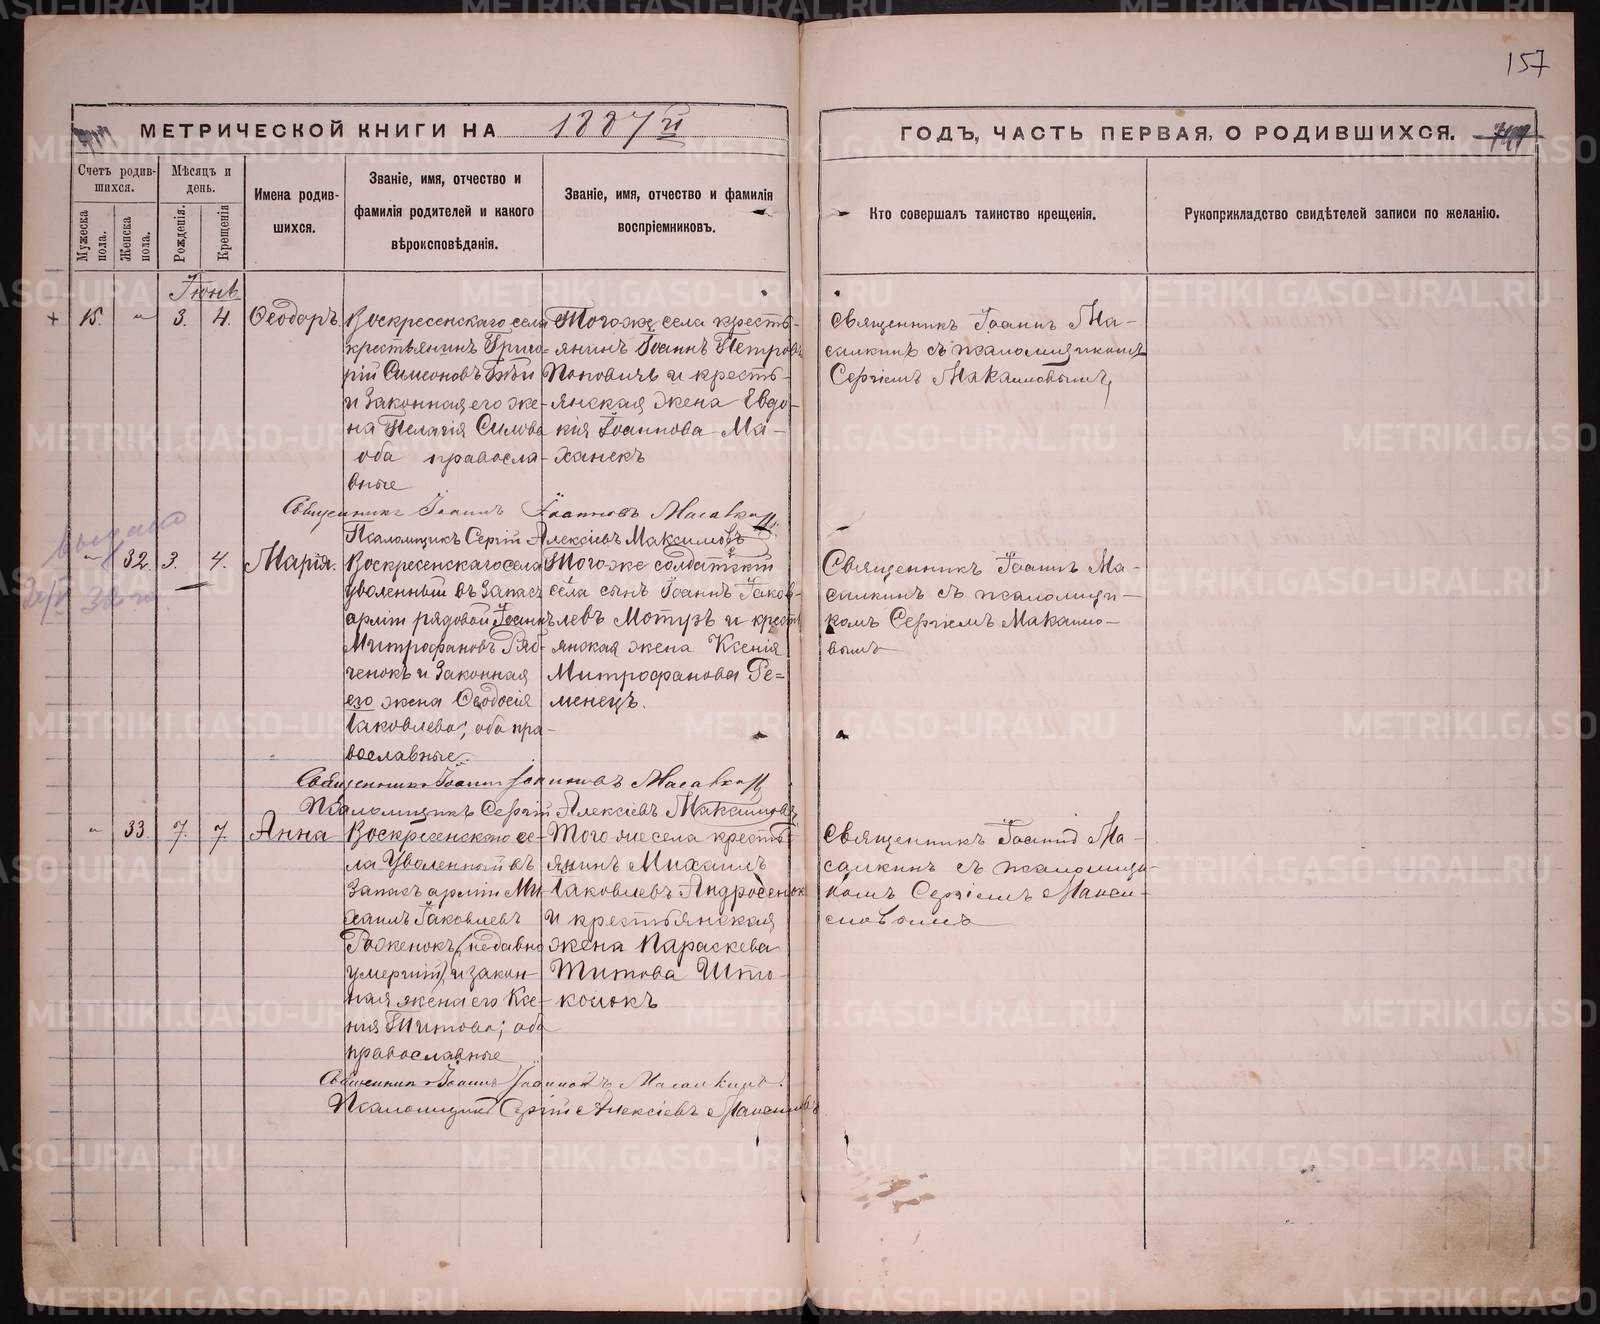 157
МЕТРИЧЕСКОЙ КНИГИ НА 1887й
ГОДЪ, ЧАСТЬ ПЕРВАЯ, О РОДИВШИХСЯ.
Счетъ родив-
шихся.
Мужеска
пола.
Женска
пола.
Мѣсяцъ и
день.
Рожденія.
Крещенія
Имена родив-
шихся.
Званіе, имя, отчество и
фамилія родителей и какого
вѣроисповѣданія.
Званіе, имя, отчество и фамилія
воспріемниковъ.
Кто совершалъ таинство крещенія.
Рукоприкладство свидѣтелей записи по желанію.
Іюнь
15. " 3. 4. Ѳеодоръ.
Воскресенскаго села
крестьянинъ Григо-
рій Симеоновъ
и законная его же-
на Пелагія Силова
оба правосла-
вные
Того же села кресть-
янинъ Іоаннъ Петровъ
Поповичъ и кресть-
янская жена Евдо-
кія Іоаннова Ма-
ханекъ
Священникъ Іоаннъ Ма-
салкинъ съ псаломщикомъ
Сергіемъ Максимовымъ
Священникъ Іоаннъ Іоанновъ Масалкинъ
Псаломщикъ Сергій Алексіевъ Максимовъ
выдано
" 32. 3. 4. Марія.
Воскресенскаго села
уволенный въ запасъ
арміи рядовой Іоаннъ
Митрофановъ Ряб-
ченокъ и законная
его жена Ѳеодосія
Іаковлева; оба пра-
вославные.
Того же солдатскій
села сынъ Іоаннъ Іаков-
левъ Мотузъ и крест
янская жена Ксенія
Митрофанова Ре-
менецъ.
Священникъ Іоаннъ Ма-
салкинъ съ псаломщи-
комъ Сергіемъ Максимо-
вымъ
Священникъ Іоаннъ Іоанновъ Масалкинъ
Псаломщикъ Сергій Алексіевъ Максимовъ
" 33. 7. 7. Анна
Воскресенскаго се-
ла уволенный въ
запасъ арміи Ми-
хаилъ Іаковлевъ
Роженокъ, (недавно
умершій), и закон-
ная жена его Ксе-
нія Титова; оба
православные
Того же села кресть-
янинъ Михаилъ
Іаковлевъ Андросенок
и крестьянская
жена Параскева
Титова Што-
коло́къ
Священникъ Іоаннъ Ма-
салкинъ съ псаломщи-
комъ Сергіемъ Макси-
мовымъ
Священникъ Іоаннъ Іоанновъ Масалкинъ.
Псаломщикъ Сергій Алексіевъ Максимовъ
METRIKI.GASO-URAL.RU